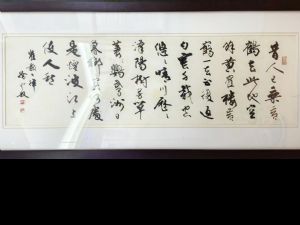 昔人已乘黄
鶴去此地空
餘黄鶴樓黄
鶴一去不復返
白雲千載空
悠悠晴川歷
歷漢陽樹芳草
萋萋鸚鵡洲日
暮鄉關何處
是煙波江上
使人愁